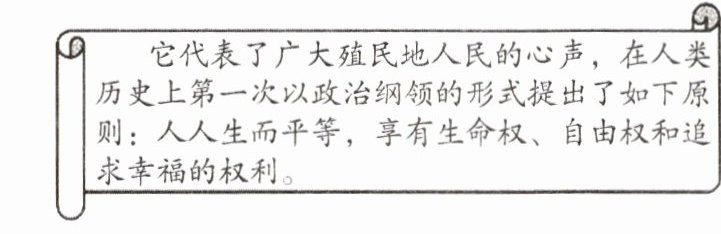 它代表了广大殖民地人民的心声，在人类
历史上第一次以政治纲领的形式提出了如下原
则：人人生而平等，享有生命权、自由权和追
求幸福的权利。